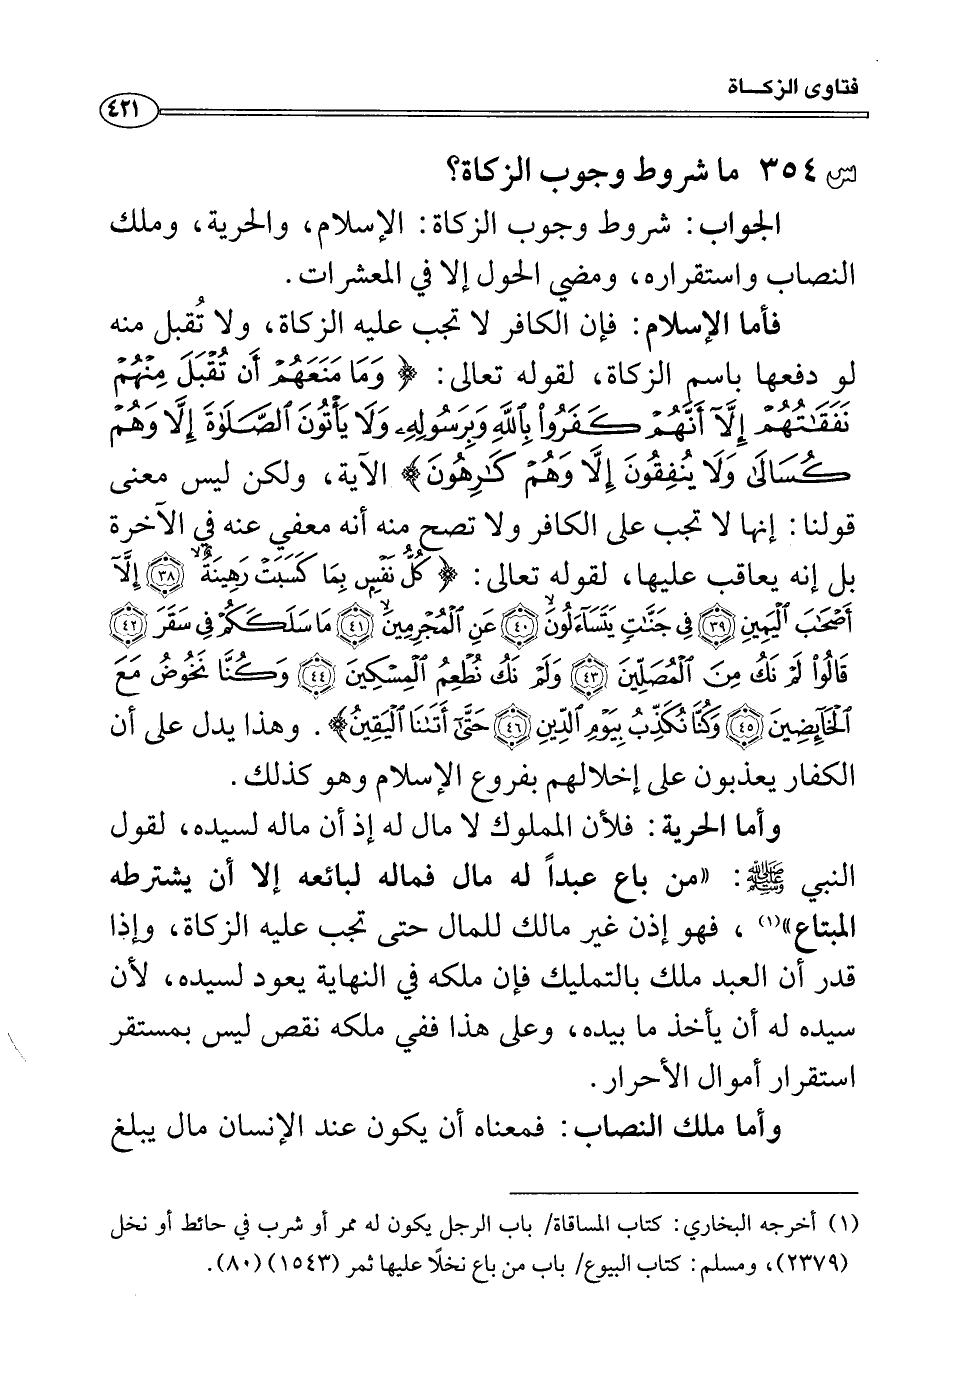 فتاوى الزكـــاة
٤٢١
س ٣٥٤ ما شروط وجوب الزكاة؟
الجواب: شروط وجوب الزكاة: الإسلام، والحرية، وملك
النصاب واستقراره، ومضي الحول إلا في المعشرات.
فأما الإسلام: فإن الكافر لا تجب عليه الزكاة، ولا تُقبل منه
لو دفعها باسم الزكاة، لقوله تعالى: ﴿ وَمَا مَنَعَهُمْ أَن تُقْبَلَ مِنْهُمْ
نَفَقَٰتُهُمْ إِلَّآ أَنَّهُمْ كَفَرُوا۟ بِٱللَّهِ وَبِرَسُولِهِۦ وَلَا يَأْتُونَ ٱلصَّلَوٰةَ إِلَّا وَهُمْ
كُسَالَىٰ وَلَا يُنفِقُونَ إِلَّا وَهُمْ كَٰرِهُونَ﴾ الآية، ولكن ليس معنى
قولنا: إنها لا تجب على الكافر ولا تصح منه أنه معفي عنه في الآخرة
بل إنه يعاقب عليها، لقوله تعالى: ﴿ كُلُّ نَفْسٍۭ بِمَا كَسَبَتْ رَهِينَةٌ ۙ ٣٨ إِلَّآ
أَصْحَٰبَ ٱلْيَمِينِ ٣٩ فِى جَنَّٰتٍ يَتَسَآءَلُونَ ۙ ٤٠ عَنِ ٱلْمُجْرِمِينَ ۙ ٤١ مَا سَلَكَكُمْ فِى سَقَرَ ٤٢
قَالُوا۟ لَمْ نَكُ مِنَ ٱلْمُصَلِّينَ ٤٣ وَلَمْ نَكُ نُطْعِمُ ٱلْمِسْكِينَ ٤٤ وَكُنَّا نَخُوضُ مَعَ
ٱلْخَآئِضِينَ ٤٥ وَكُنَّا نُكَذِّبُ بِيَوْمِ ٱلدِّينِ ٤٦ حَتَّىٰٓ أَتَىٰنَا ٱلْيَقِينُ﴾. وهذا يدل على أن
الكفار يعذبون على إخلالهم بفروع الإسلام وهو كذلك.
وأما الحرية: فلأن المملوك لا مال له إذ أن ماله لسيده، لقول
النبي ﷺ: «من باع عبداً له مال فماله لبائعه إلا أن يشترطه
المبتاع»(١)، فهو إذن غير مالك للمال حتى تجب عليه الزكاة، وإذا
قدر أن العبد ملك بالتمليك فإن ملكه في النهاية يعود لسيده، لأن
سيده له أن يأخذ ما بيده، وعلى هذا ففي ملكه نقص ليس بمستقر
استقرار أموال الأحرار.
وأما ملك النصاب: فمعناه أن يكون عند الإنسان مال يبلغ
(١) أخرجه البخاري: كتاب المساقاة/ باب الرجل يكون له ممر أو شرب في حائط أو نخل
(٢٣٧٩)، ومسلم: كتاب البيوع/ باب من باع نخلًا عليها ثمر (١٥٤٣) (٨٠).